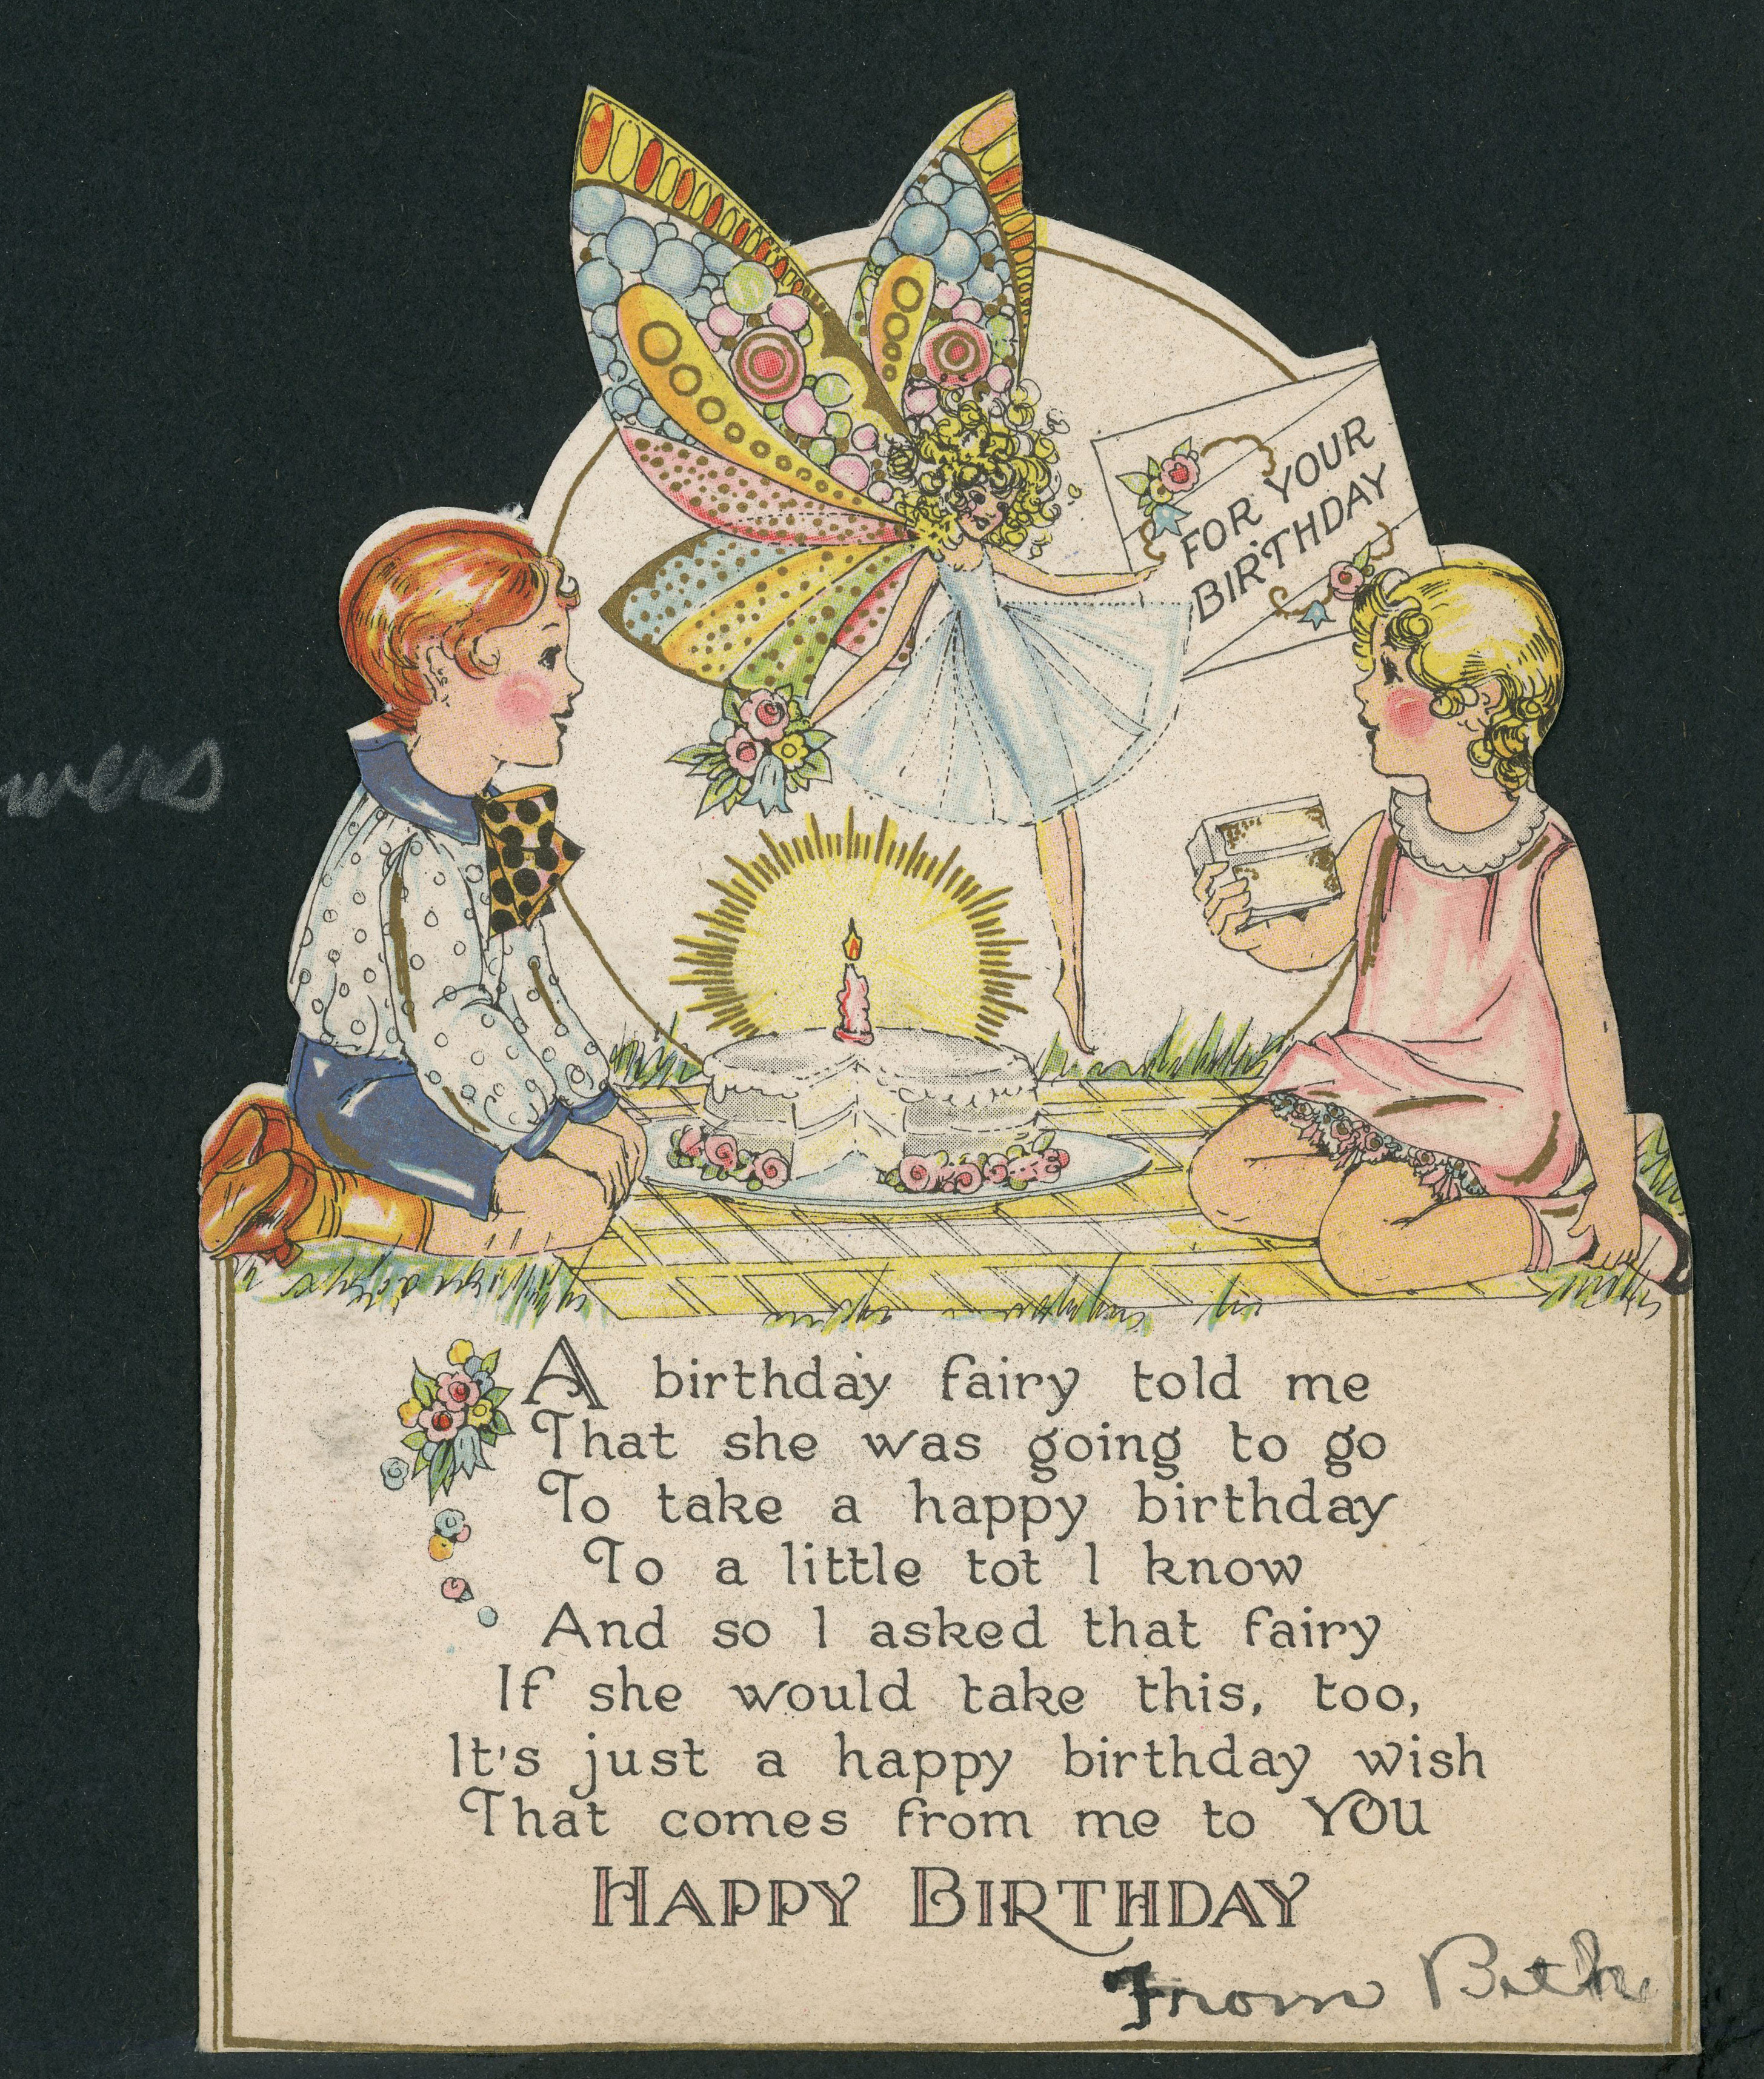 wers
FOR YOUR
BIRTHDAY
A birthday fairy told me
That she was going to go
To take a happy birthday
To a little tot I know
And so I asked that fairy
If she would take this, too,
It's just a happy birthday wish
That comes from me to YOU
HAPPY BIRTHDAY
From Beth